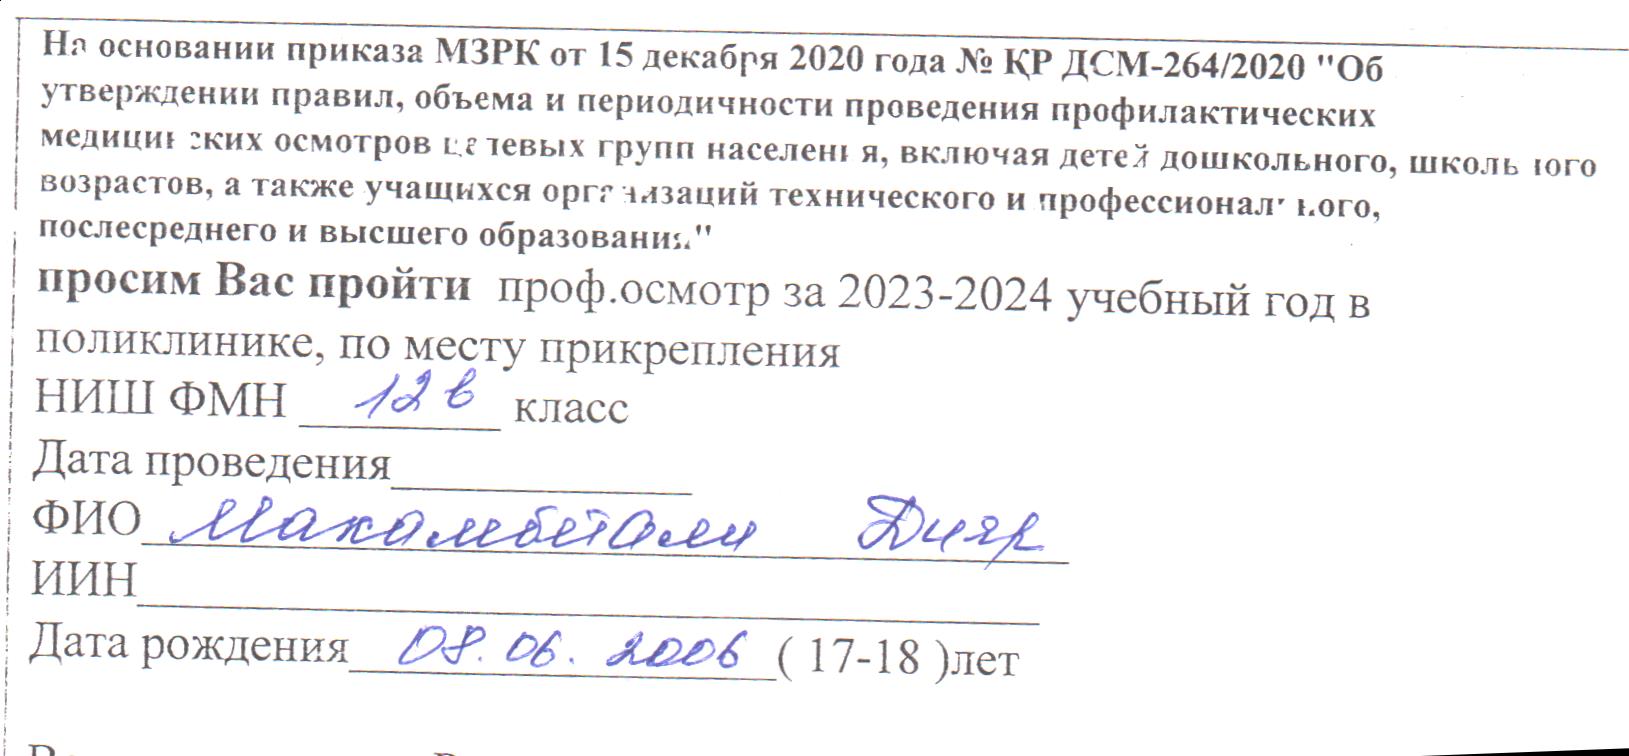 На основании приказа МЗРК от 15 декабря 2020 года № ҚР ДСМ-264/2020 "Об
утверждении правил, объема и периодичности проведения профилактических
медицинских осмотров целевых групп населения, включая детей дошкольного, школьного
возрастов, а также учащихся организаций технического и профессионального,
послесреднего и высшего образования"
просим Вас пройти проф.осмотр за 2023-2024 учебный год в
поликлинике, по месту прикрепления
НИШ ФМН 12 в класс
Дата проведения
ФИО Макамбетали Дияр
ИИН
Дата рождения 08.06.2006 ( 17-18 )лет